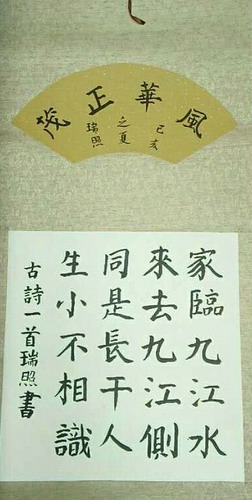 風華正茂
己亥
之夏
瑞照
家臨九江水
來去九江側
同是長干人
生小不相識
古詩一首瑞照書